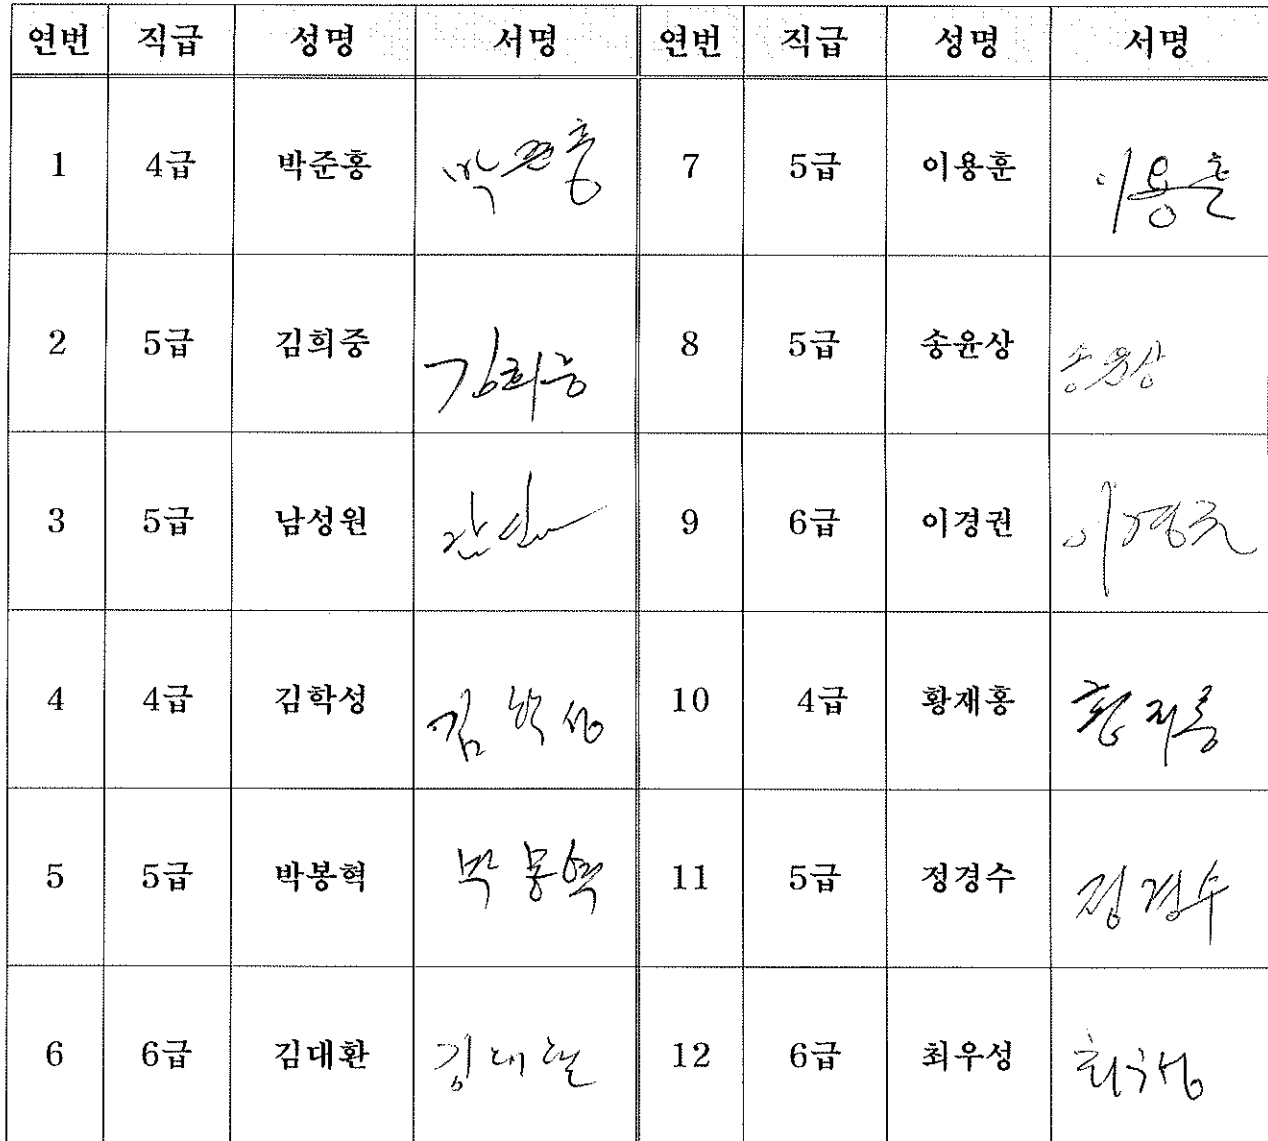 연번 직급 성명 서명 연번 직급 성명 서명
1 4급 박준홍 박준홍 7 5급 이용훈 이용훈
2 5급 김희중 김희중 8 5급 송윤상 송윤상
3 5급 남성원 9 6급 이경권 이경권
4 4급 김학성 김학성 10 4급 황재홍 황재홍
5 5급 박봉혁 박봉혁 11 5급 정경수 정경수
6 6급 김대환 김대환 12 6급 최우성 최우성